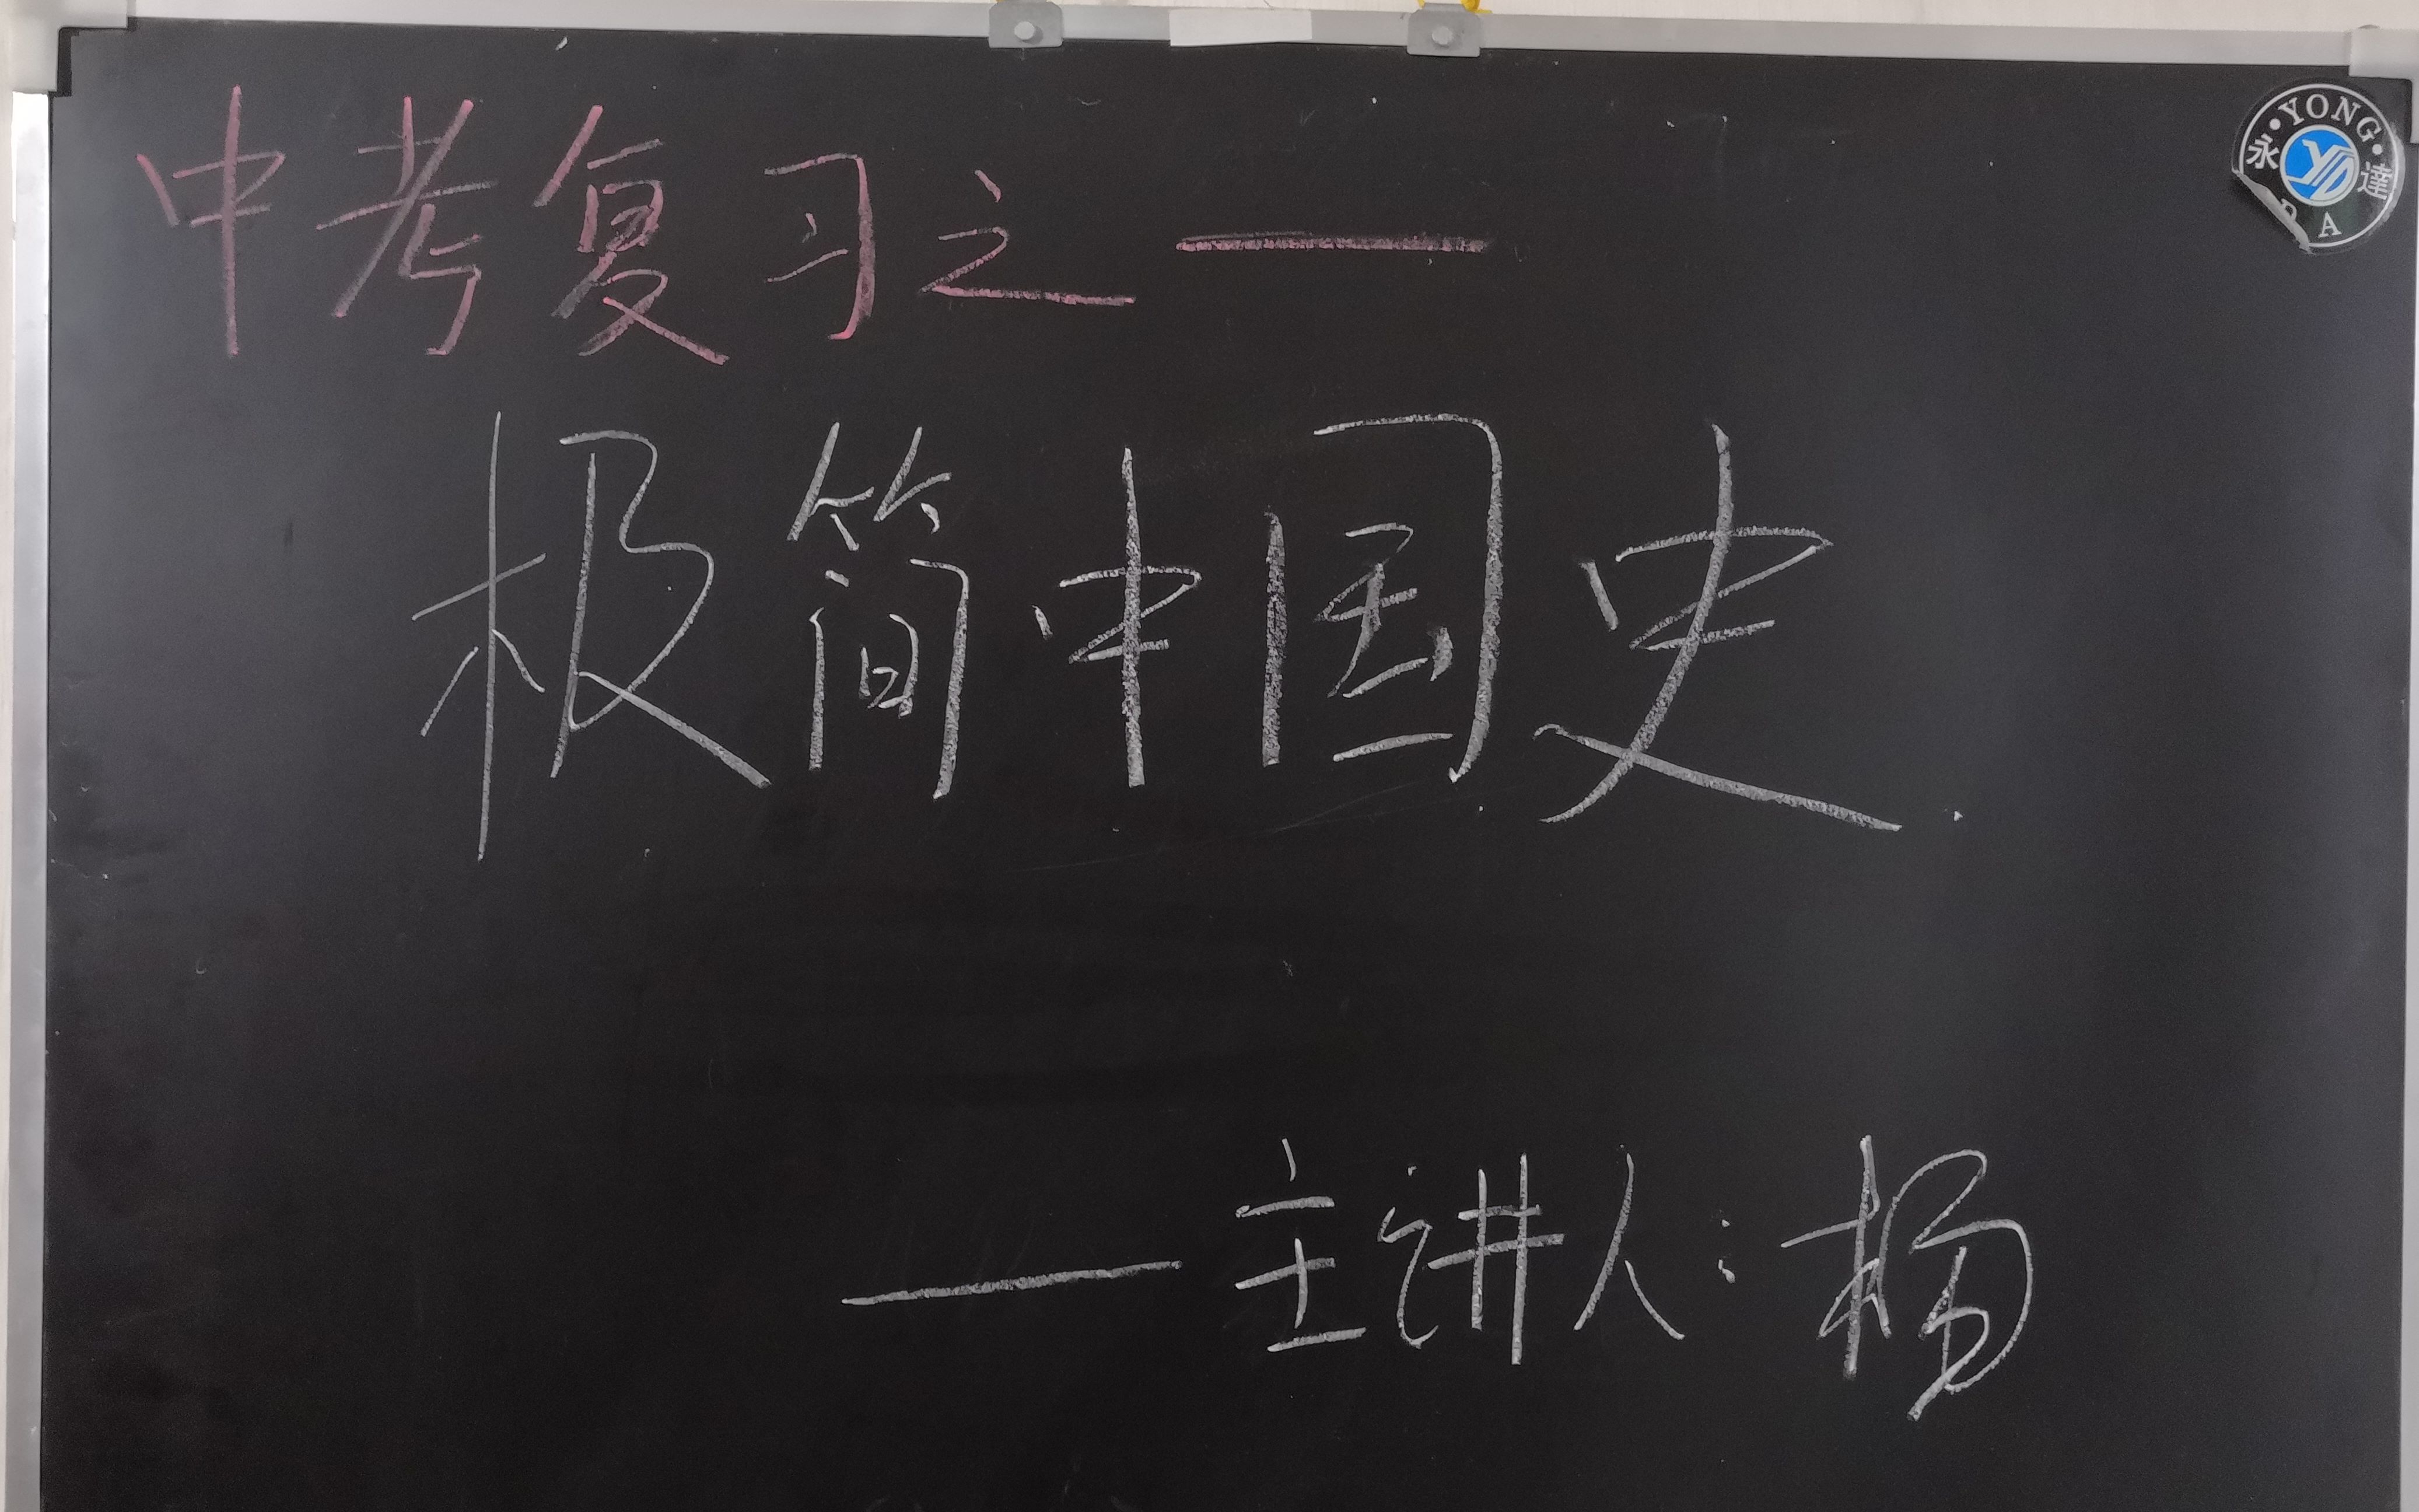 中考复习之一
极简中国史
——主讲人：杨
YONG
永 達
DA